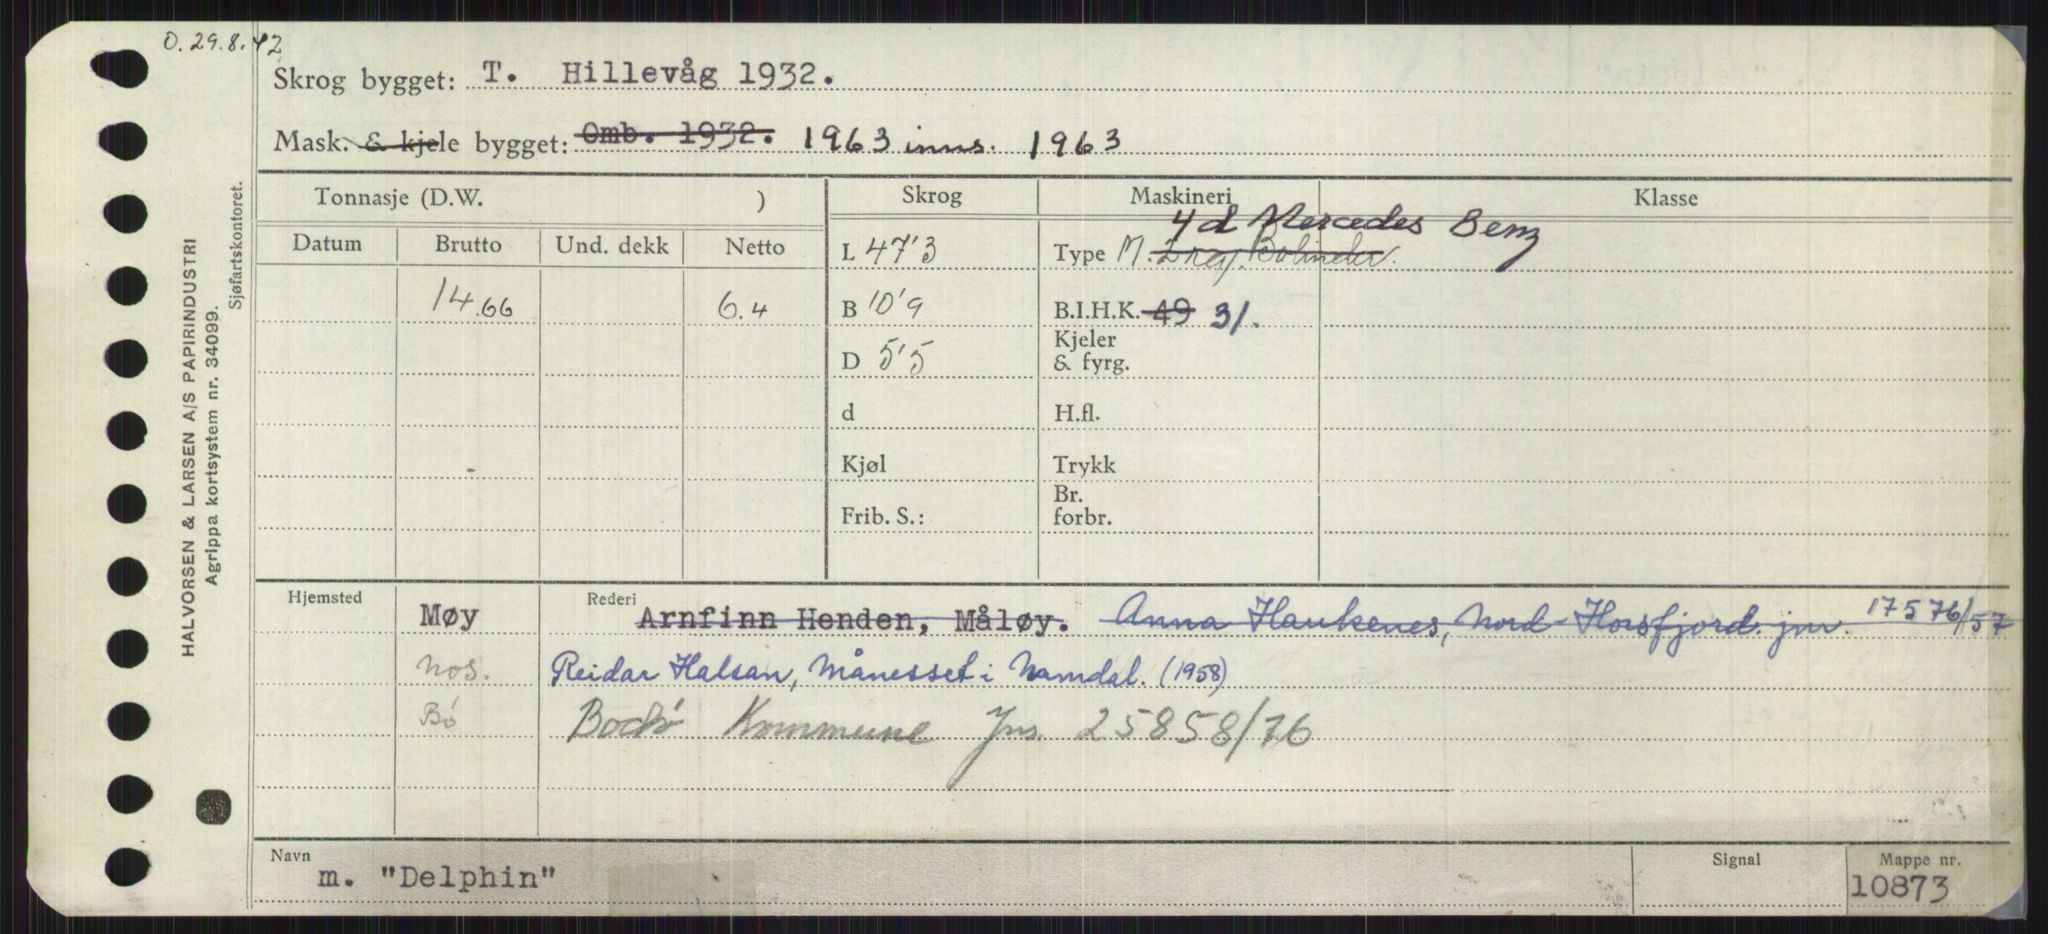 O. 29.8.42
Skrog bygget: T. Hillevåg 1932.
Mask. & kjele bygget: Omb. 1932. 1963 inns. 1963
Tonnasje (D.W. ) Skrog Maskineri Klasse
Datum Brutto Und. dekk Netto
4 d Mercedes Benz
L 47'3 Type M. 2 Bolinder.
14.66 6.4 B 10'9 B.I.H.K. 49 31.
D 5'5 Kjeler & fyrg.
d H.fl.
Kjøl Trykk
Frib. S.: Br. forbr.
Hjemsted Rederi
Møy Arnfinn Henden, Måløy. Anna Haukenes, Nord-Horsfjord. jnr. 17576/57
Nos. Reidar Halsan, Månesset i Namdal. (1958)
Bö Bodö Kommune Jns. 25858/76
Navn Signal Mappe nr.
m. "Delphin" 10873
HALVORSEN & LARSEN A/S PAPIRINDUSTRI
Agrippa kortsystem nr. 34099.
Sjøfartskontoret.